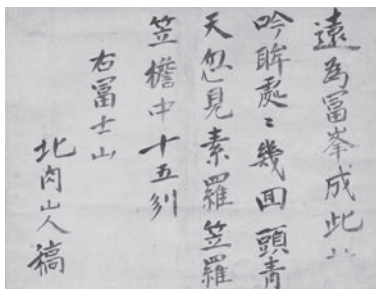 遠為冨峯成此
吟眸處〻幾回頭青
天忽見素羅笠羅
笠檐中十五州
右冨士山
北肉山人稿